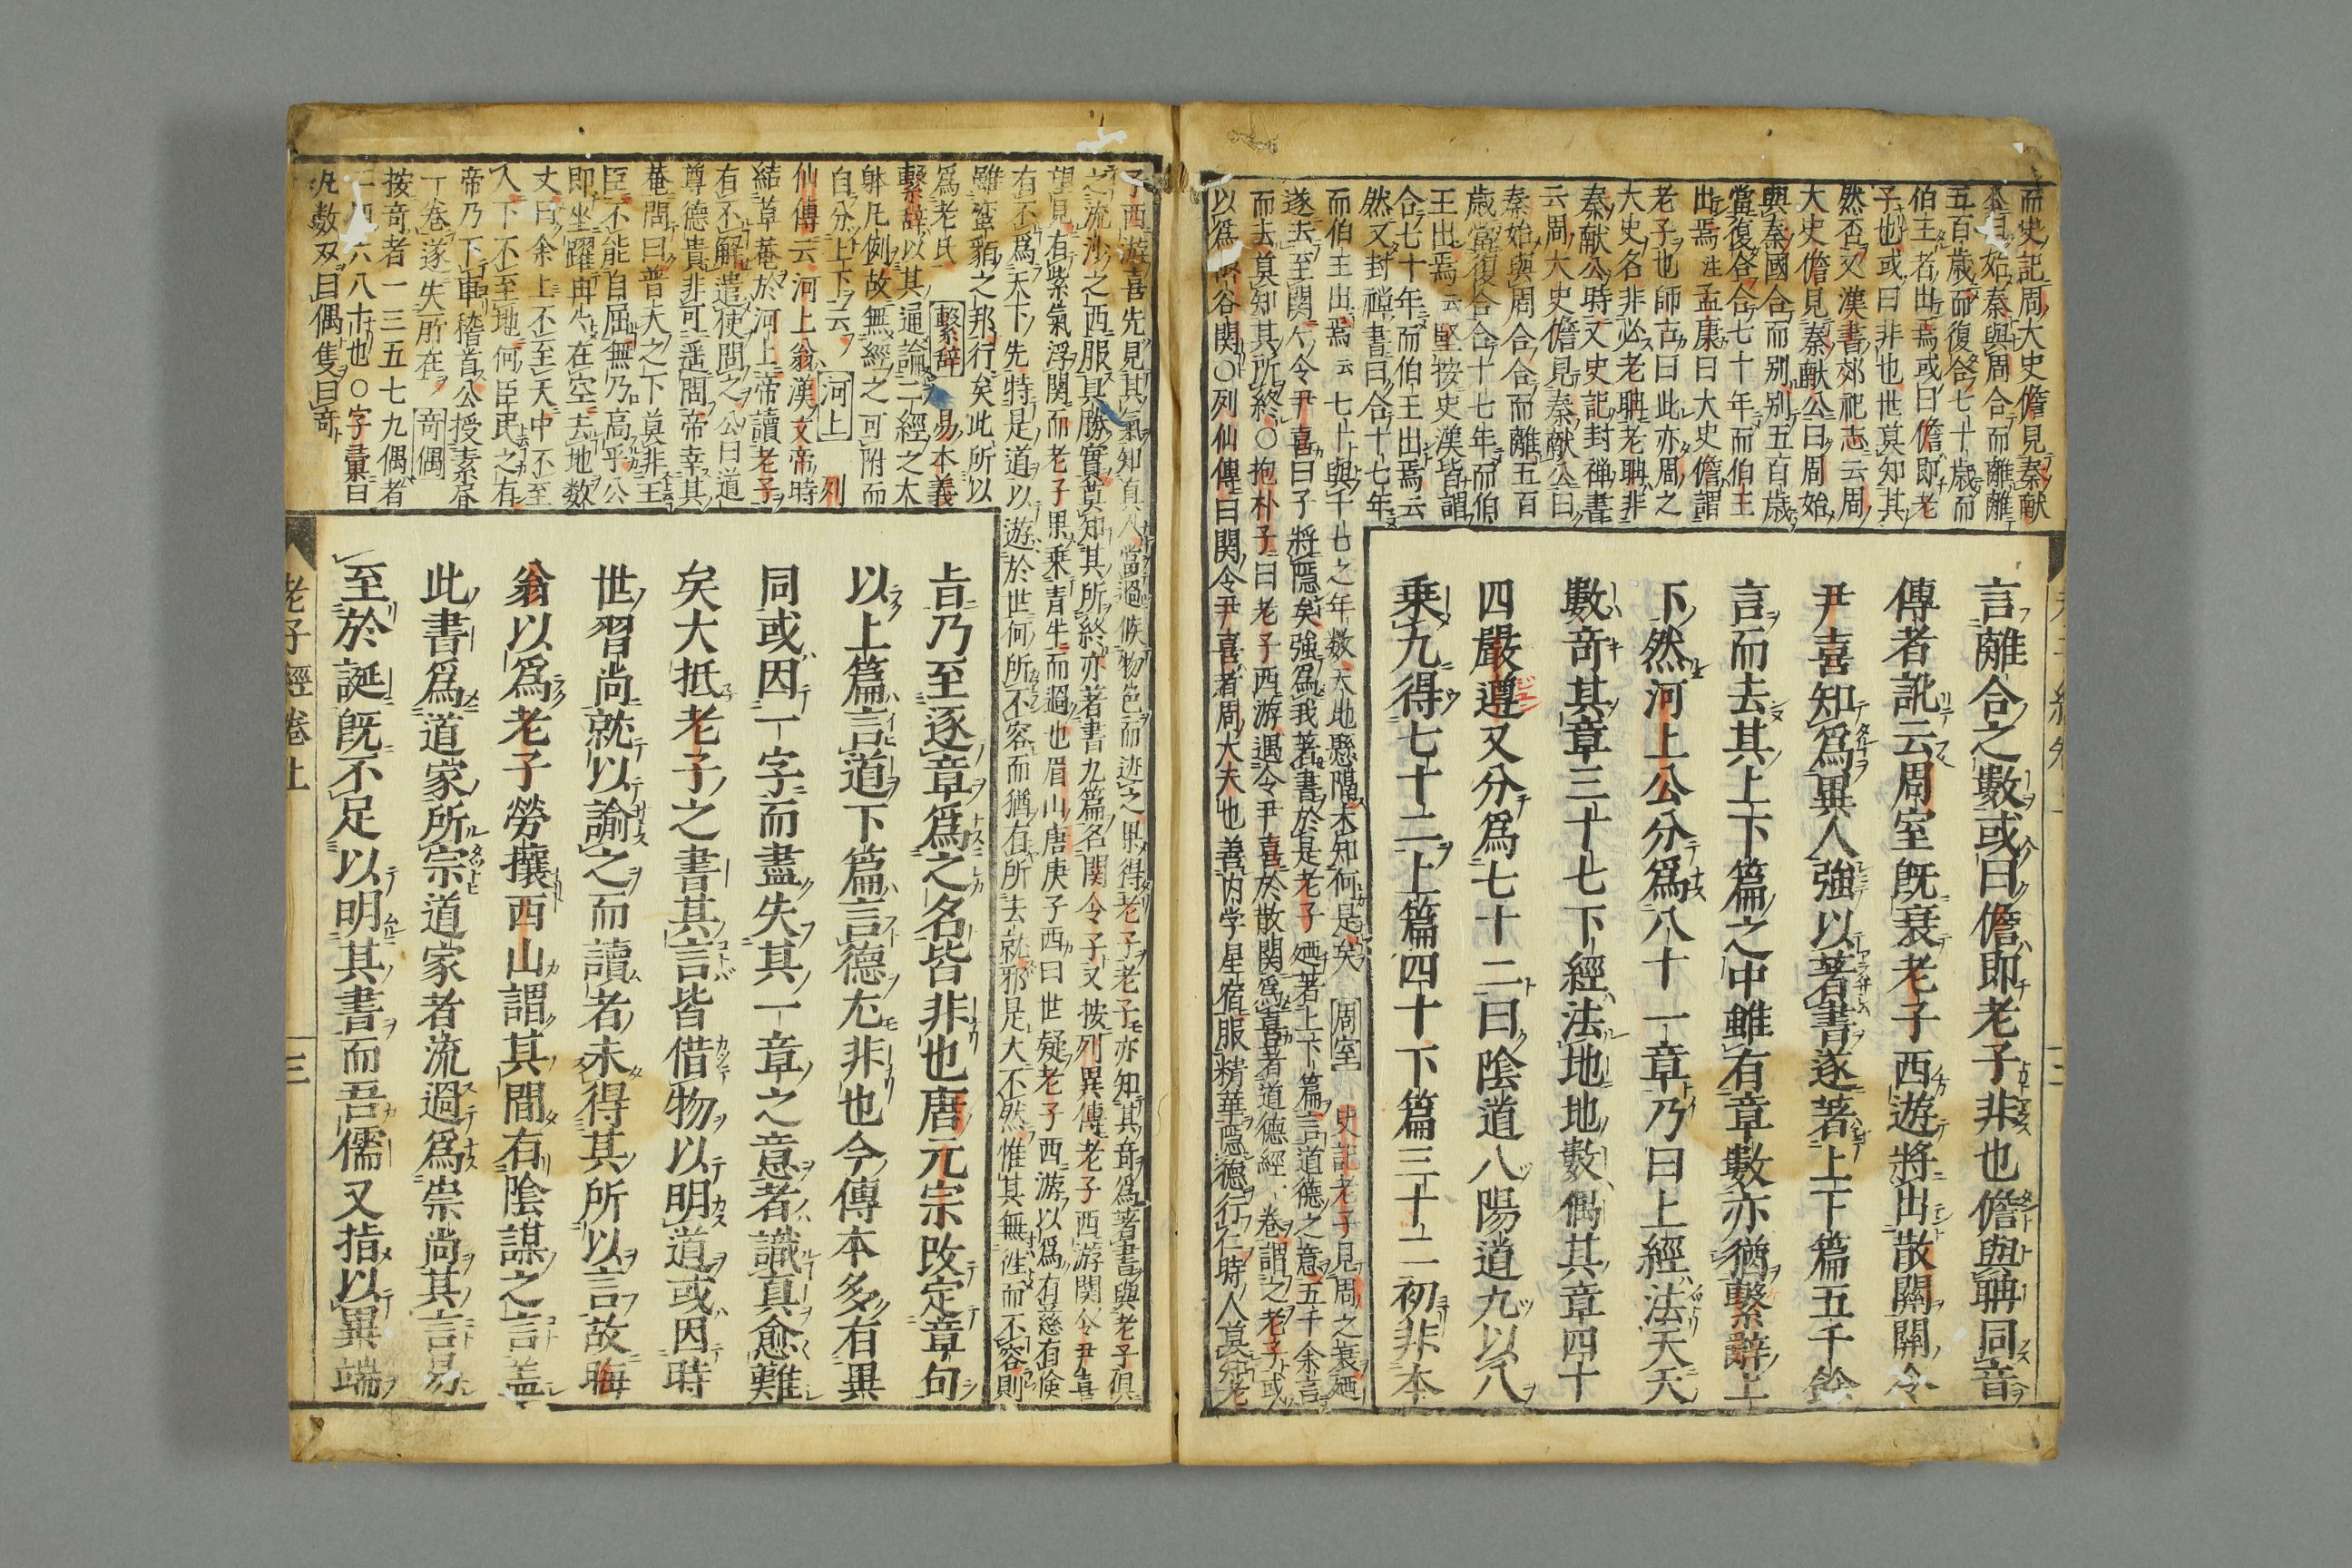 而史記周大史儋見秦献
公曰始秦與周合而離離
五百歳而復合合七十歳而
伯王者出焉或曰儋即老
子也或曰非也世莫知其
然否又漢書郊祀志云周
大史儋見秦献公曰周始
與秦國合而別別五百歳
當復合合七十年而伯王
出焉注孟康曰大史儋謂
老子也師古曰此亦周之
大史名非必老聃老聃非
秦献公時又史記封禅書
云周大史儋見秦献公曰
秦始與周合合而離五百
歳當復合合十七年而伯
王出焉云堅按史漢皆謂
合七十年而伯王出焉云
然又封禅書曰合十七年
而伯王出焉云七十與十七之年数天地懸隔未知何是矣 周室 史記老子見周之衰廼
遂去至関令尹喜曰子將隠矣強為我著書於是老子廼著上下篇言道徳之意五千余言
而去莫知其所終○抱朴子曰老子西游遇令尹喜於散関為喜著道徳經一巻謂之老子或
以為凾谷関○列仙傳曰関令尹喜者周大夫也善内学星宿服精華隠徳行仁時人莫知老
言離合之數或曰儋即老子非也儋與聃同音
傳者訛云周室既衰老子西遊將出散關關令
尹喜知爲異人強以著書遂著上下篇五千餘
言而去其上下篇之中雖有章數亦猶繫辭上
下然河上公分爲八十一章乃曰上經法天天
數竒其章三十七下經法地地數偶其章四十
四嚴遵又分爲七十二曰陰道八陽道九以八
乘九得七十二上篇四十下篇三十二初非本
子西游喜先見其氣知真人當過候物色而迹之果得老子老子亦知其竒為著書與老子倶
之流沙之西服具勝實莫知其所終亦著書九篇名関令子又按列異傳老子西游関令尹喜
望見有紫氣浮関而老子果乗青牛而過也眉山唐庚子西曰世疑老子西游以為有慈有倹
有不為天下先特是道以遊於世何所不容而猶有所去就邪是大不然惟其無徃而不容則
雖蛮貊之邦行矣此所以
為老氏 繫辞 易本義
繫辞以其通論一經之大
躰凡例故無經之可附而
自分上下云 河上 列
仙傳云河上翁漢文帝時
結草菴於河上帝讀老子
有不解遣使問之公曰道
尊徳貴非可遥問帝幸其
菴問曰普天之下莫非王
臣不能自屈無乃高乎公
即坐躍冉冉在空去地数
丈曰余上不至天中不至
人下不至地何臣民之有
帝乃下車稽首公授素書
一巻遂失所在 竒偶
按竒者一三五七九偶者
二四六八十也○字彙曰
凡数双曰偶隻曰竒
㫖乃至逐章爲之名皆非也唐元宗改定章句
以上篇言道下篇言德尢非也今傳本多有異
同或因一字而盡失其一章之意者識真愈難
矣大抵老子之書其言皆借物以明道或因時
世習尚就以諭之而讀者未得其所以言故晦
翁以爲老子勞攘西山謂其間有陰謀之言盖
此書爲道家所宗道家者流過爲崇尚其言易
至於誕既不足以明其書而吾儒又指以異端
老子經巻上
三